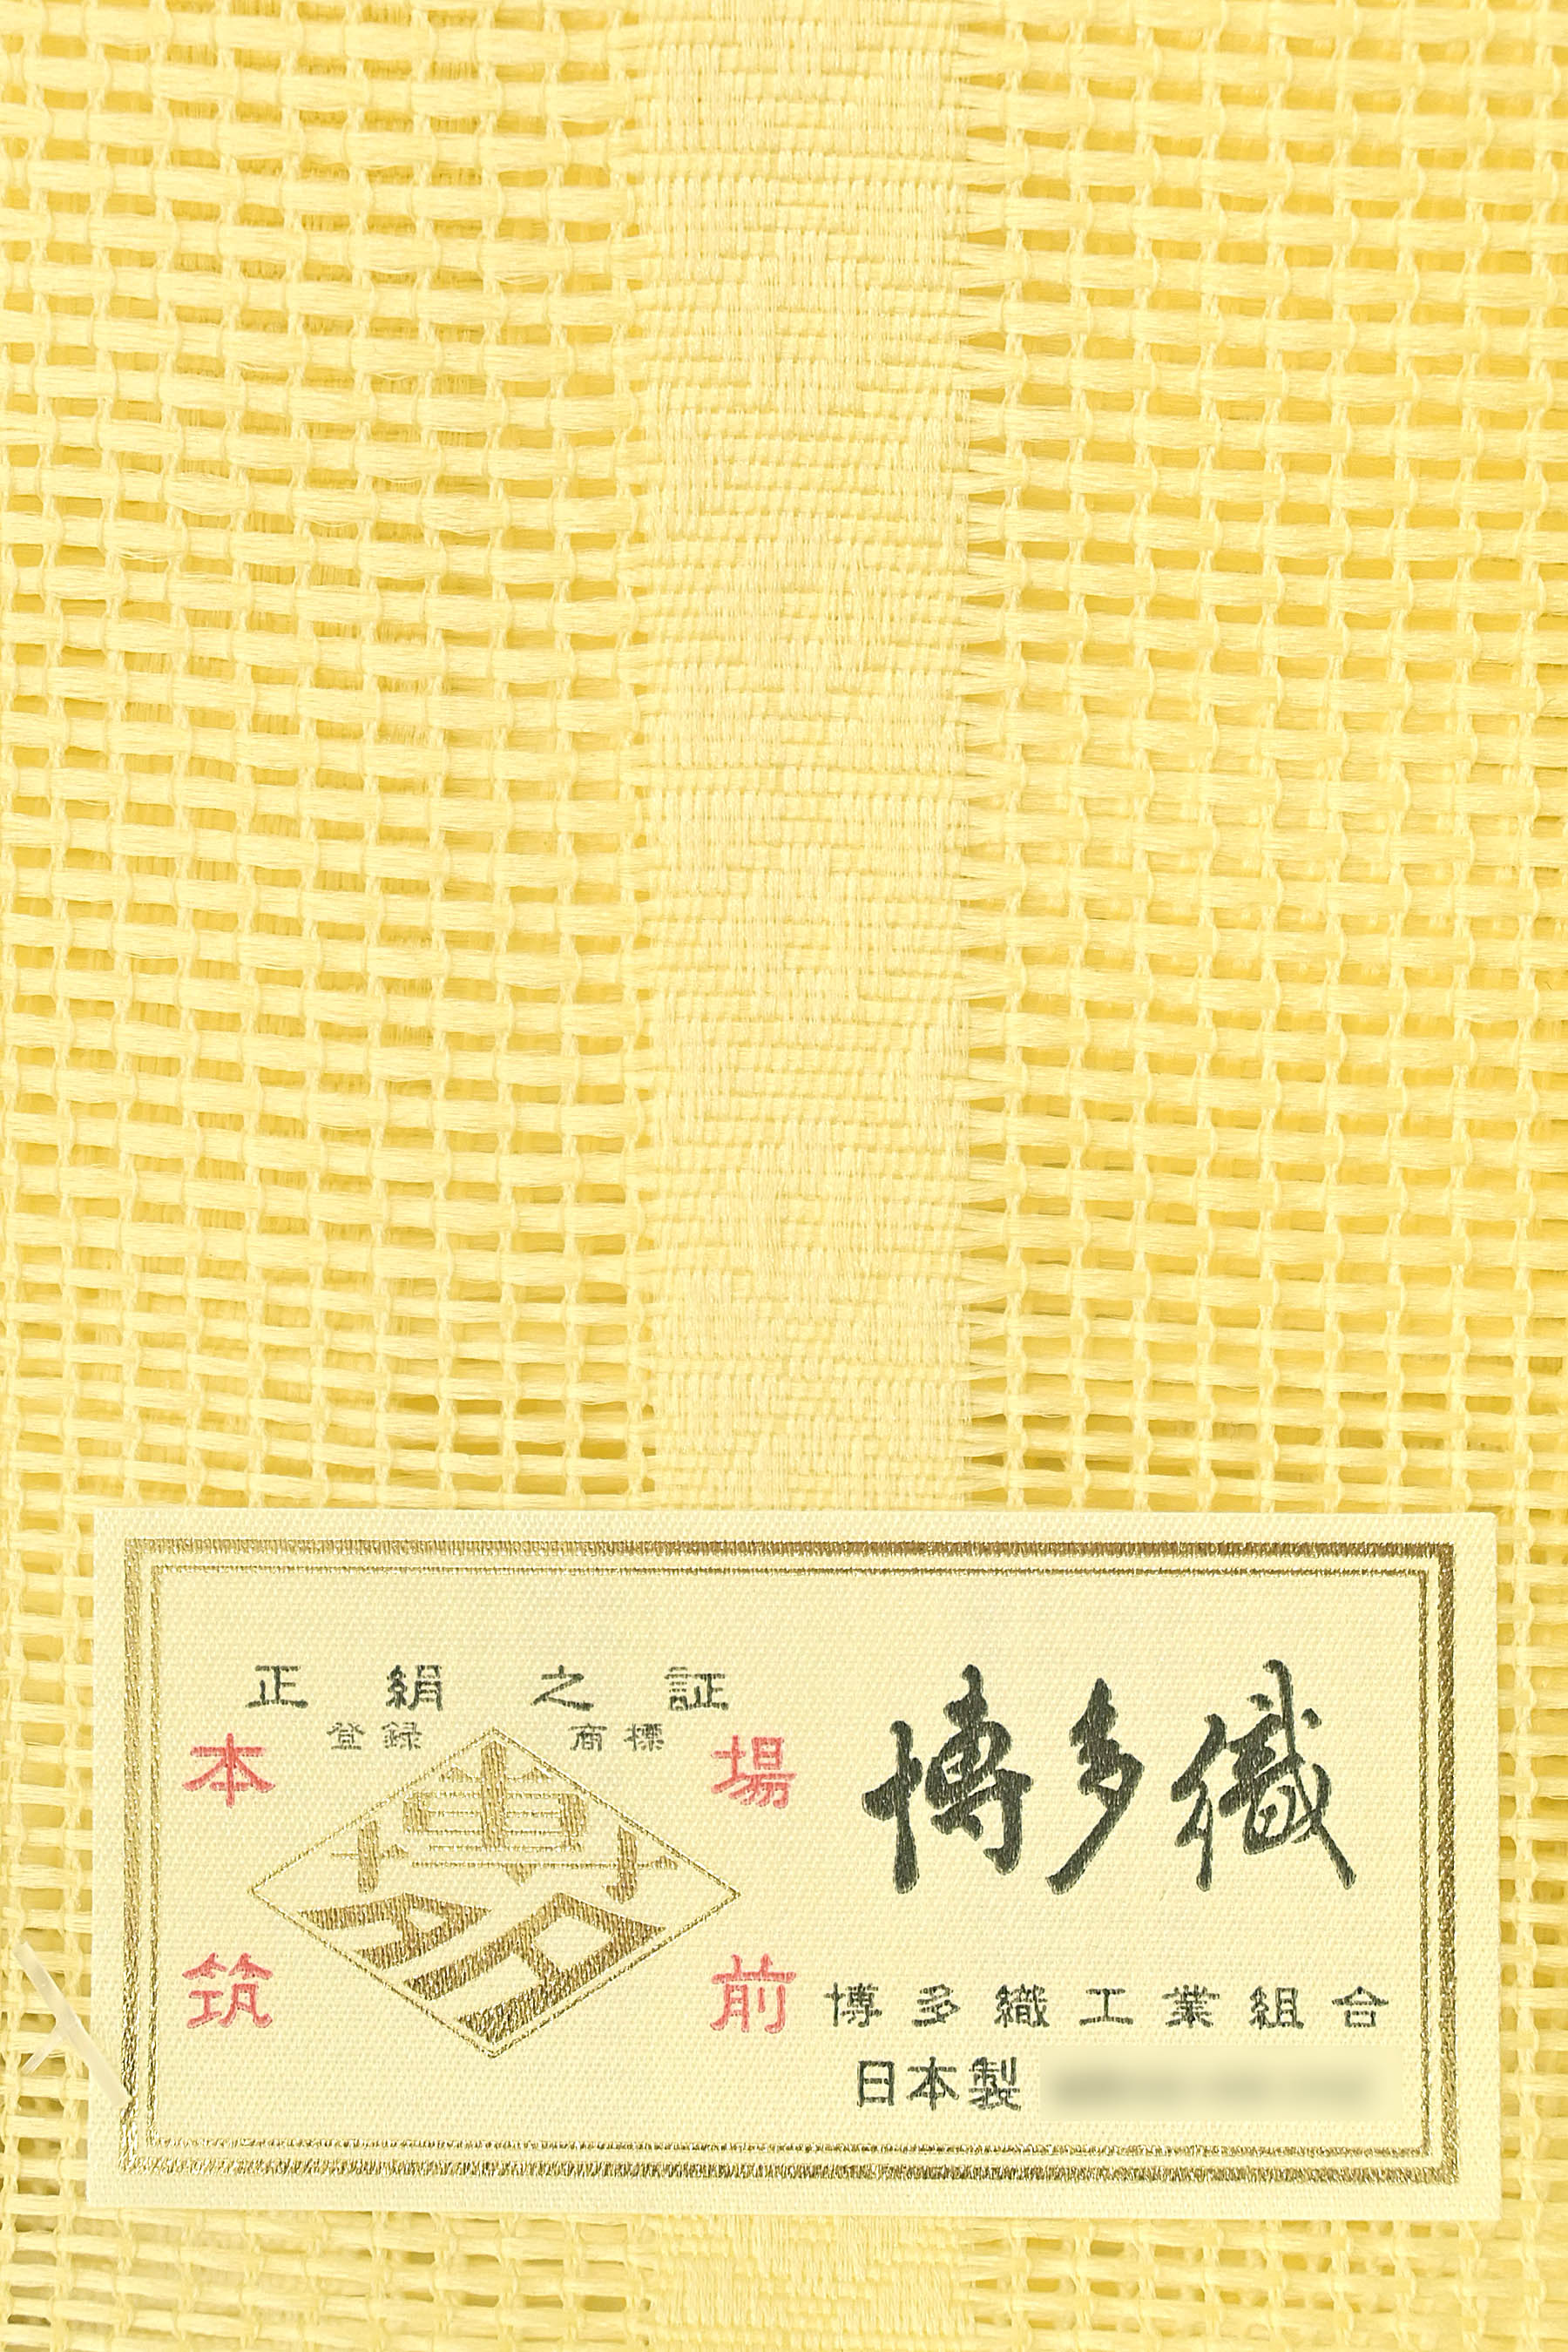 正絹之証
登録商標
本場
博多
筑前
博多織
博多織工業組合
日本製